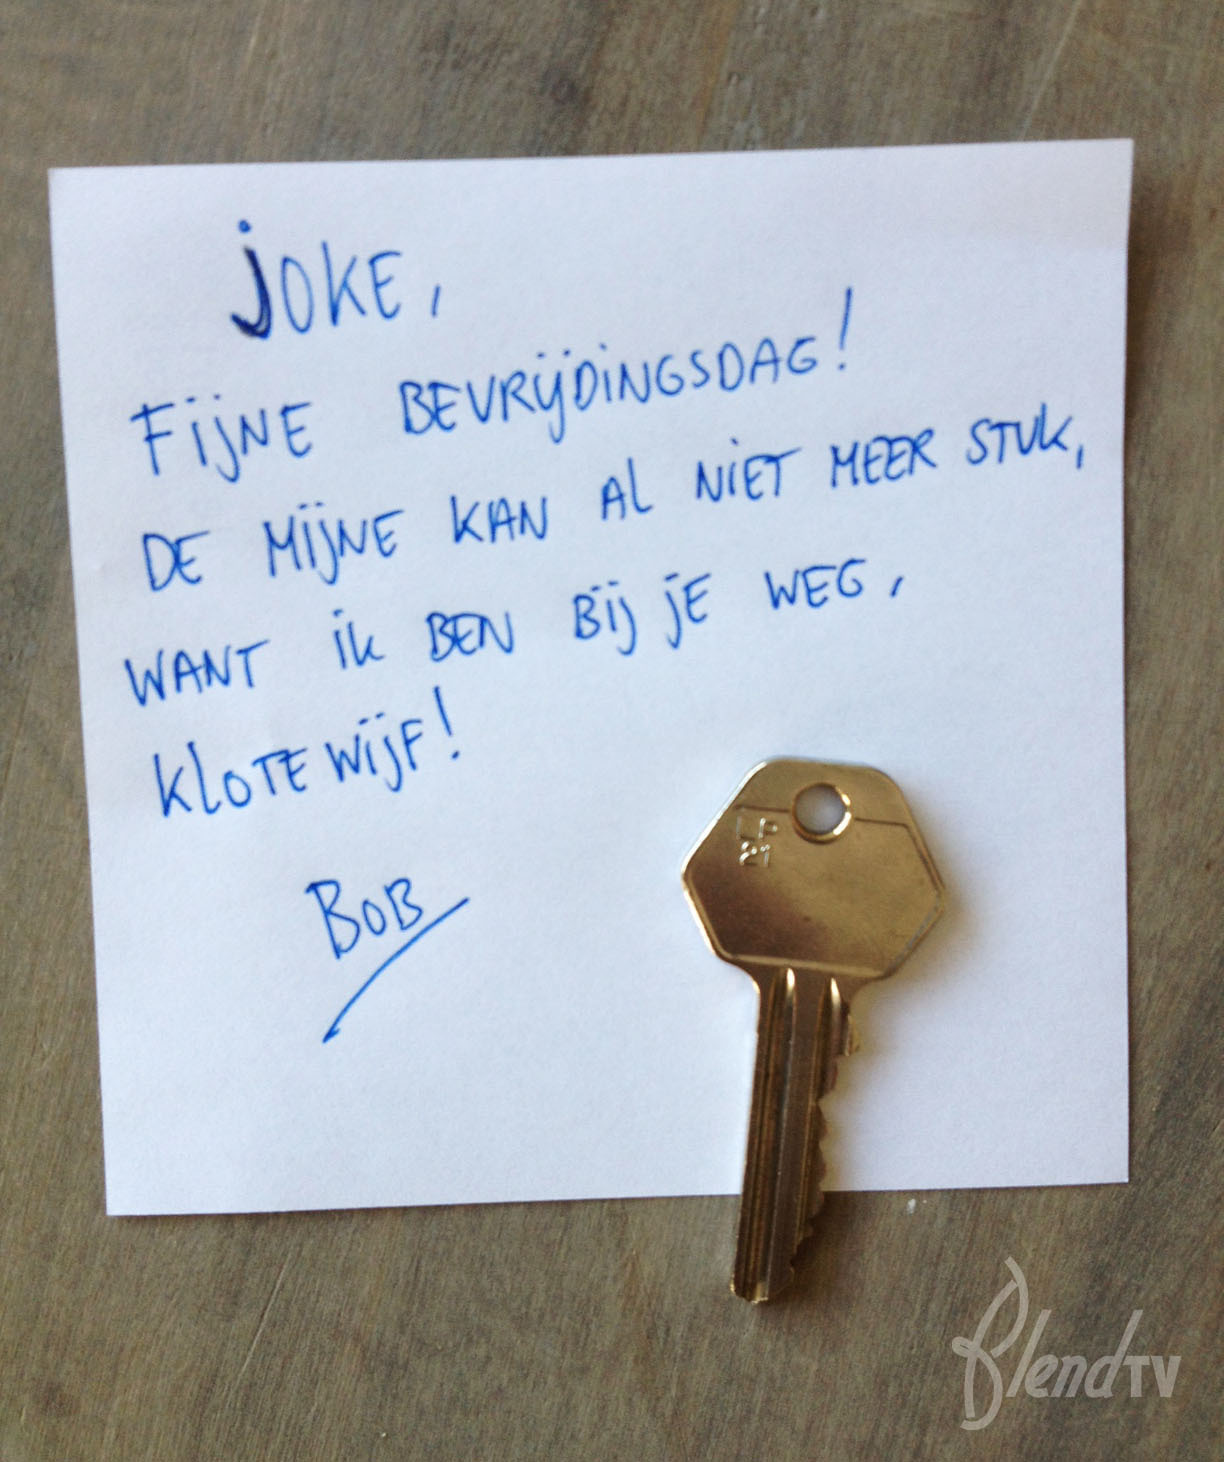 JOKE,
FIJNE BEVRIJDINGSDAG!
DE MIJNE KAN AL NIET MEER STUK,
WANT IK BEN BIJ JE WEG,
KLOTEWIJF!
BOB
LP
21
BlendTV